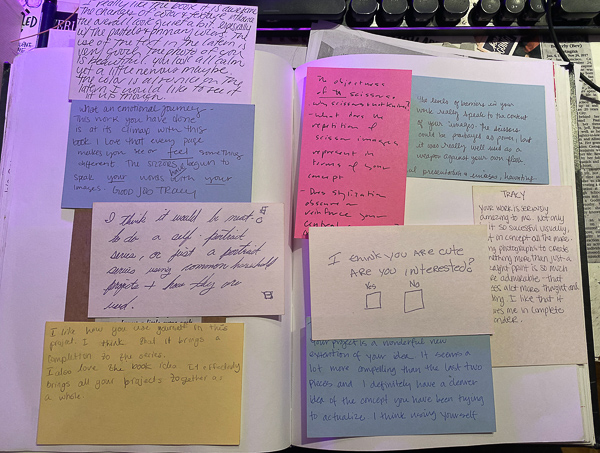 I really like the book, it is awesome.
the change of color & texture I have
the words look general a bit especially
w/ the pastel & primary colors. The
use of the font in the latern is
very nice. The photo of you
is beautiful, you look all calm
yet a little nervous maybe.
The color is all intense on the
latern I would like to see it
What an emotional journey -
This work you have done
is at its climax with this
book. I love that every page
makes you see or feel something
different. The scizors have begun to
speak your words with your
images. Good job Tracy
I think it would be neat
to do a self-portrait
series, or just a portrait
series using common household
projects + how they are
used.
I like how you use yourself in this
project. I think that it brings a
completion to the series.
I also love the book idea. It effectively
brings all your projects together as
a whole.
The objectness
of scissors
- why scissors not knives?
- what does the
repetition of
scissor images
represent in
terms of your
concept
- Does stylization
obscure or
reinforce your
central
The levels of harm in your
work really speak to the content
of your images. The scissors
could be portrayed as power, but
it was really well used as a
weapon against your own flesh
presentation & endless, haunting
TRACY
Your work is seriously
amazing to me. Not only
it so successful visually,
t in concept as the make-
ng photographs to create
nothing more than just a
point is so much
re admirable - that
kes alot more thought and
ng. I like that it
ves me in complete
onder.
I think you are cute
Are you interested?
Yes No
project is a wonderful new
execution of your idea. It seems a
lot more compelling than the last two
pieces and I definitely have a clearer
idea of the concept you have been trying
to actualize. I think using yourself